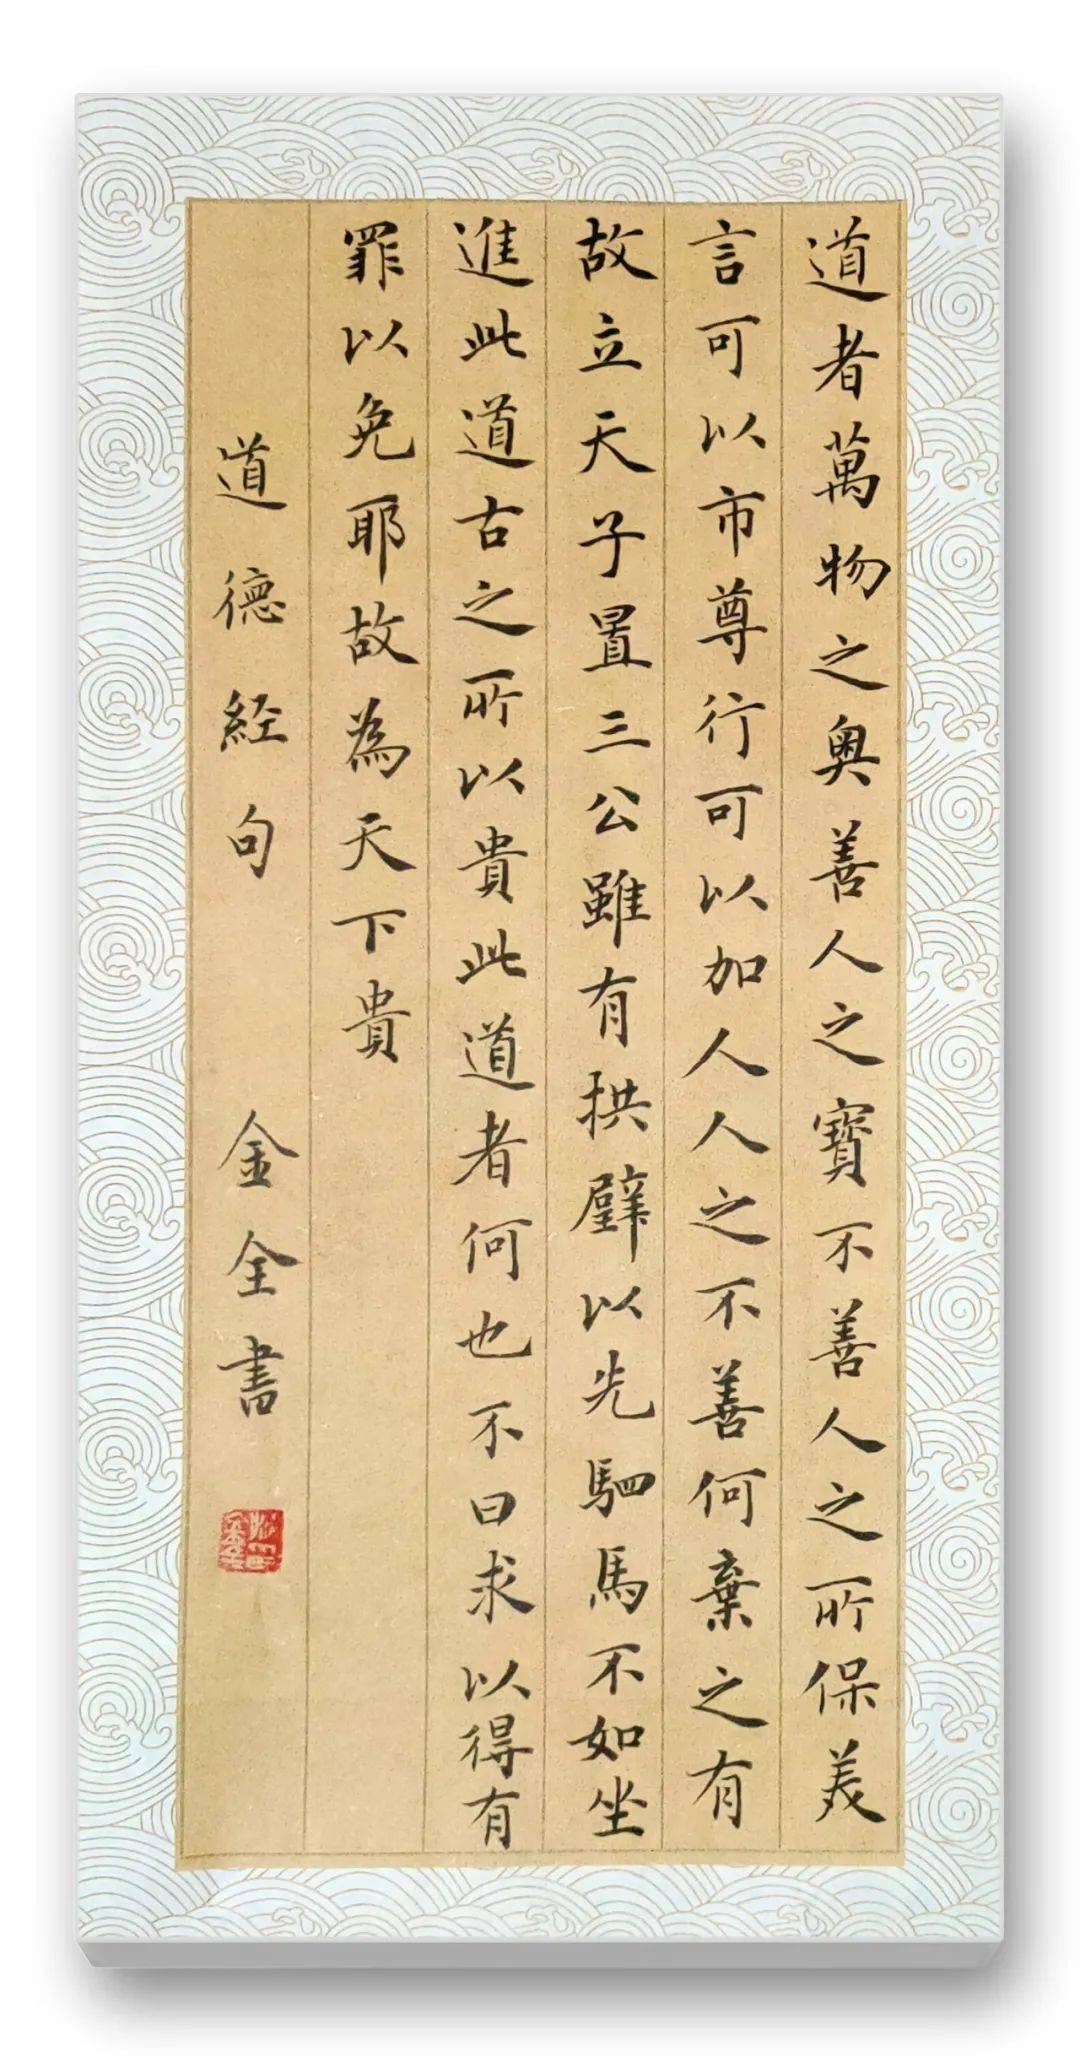 道者萬物之奥善人之寶不善人之所保美
言可以市尊行可以加人人之不善何棄之有
故立天子置三公雖有拱璧以先駟馬不如坐
進此道古之所以貴此道者何也不曰求以得有
罪以免耶故為天下貴
道德經句 金全書